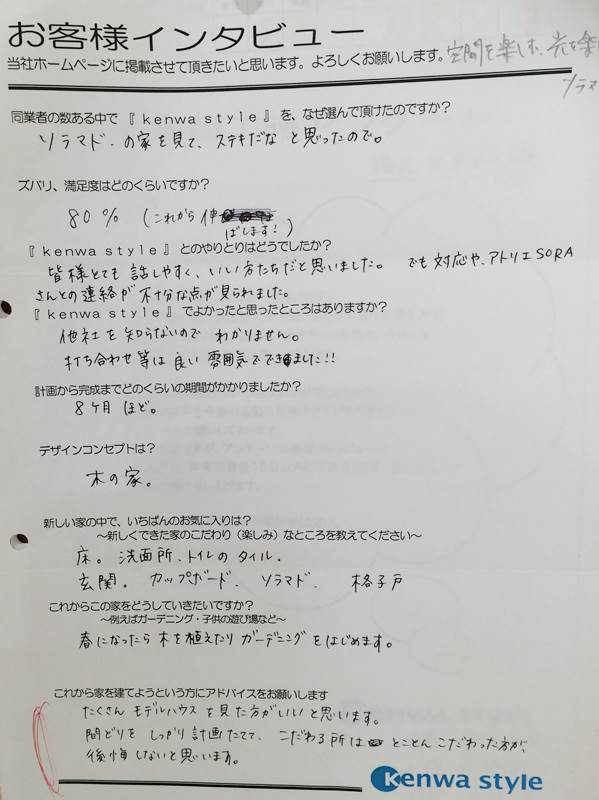 お客様インタビュー
当社ホームページに掲載させて頂きたいと思います。よろしくお願いします。
空間を楽しむ、光を楽し
ソラマ
同業者の数ある中で『kenwa style』を、なぜ選んで頂けたのですか？
ソラマド.の家を見て、ステキだな と思ったので。
ズバリ、満足度はどのくらいですか？
80% (これから伸
ばします!)
『kenwa style』とのやりとりはどうでしたか？
皆様とても話しやすく、いい方たちだと思いました。 でも対応や、アトリエSORA
さんとの連絡が不十分な点が見られました。
『kenwa style』でよかったと思ったところはありますか？
他社を知らないので わかりません。
打ち合わせ等は良い雰囲気でできました!!
計画から完成までどのくらいの期間がかかりましたか？
8ヶ月 ほど。
デザインコンセプトは？
木の家。
新しい家の中で、いちばんのお気に入りは？
～新しくできた家のこだわり（楽しみ）なところを教えてください～
床。 洗面所、トイレのタイル.
玄関. カップボード. ソラマド. 格子戸
これからこの家をどうしていきたいですか？
～例えばガーデニング・子供の遊び場など～
春になったら 木を植えたり ガーデニング をはじめます。
これから家を建てようという方にアドバイスをお願いします
たくさん モデルハウス を見た方がいいと思います。
間どりを しっかり計画たてて、こだわる所は とことん こだわった方が、
後悔しないと思います。
kenwa style